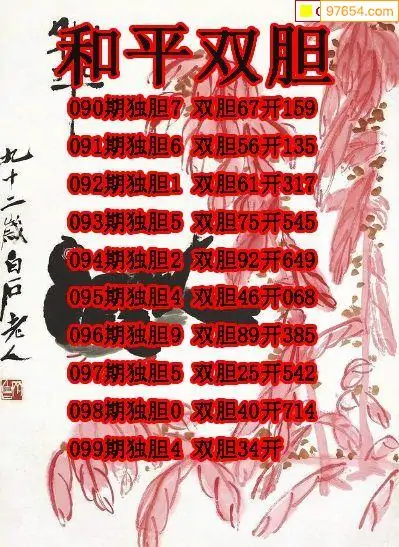 97654.com
和平双胆
090期独胆7 双胆67开159
091期独胆6 双胆56开135
092期独胆1 双胆61开317
093期独胆5 双胆75开545
094期独胆2 双胆92开649
095期独胆4 双胆46开068
096期独胆9 双胆89开385
097期独胆5 双胆25开542
098期独胆0 双胆40开714
099期独胆4 双胆34开
九十二歲白石老人